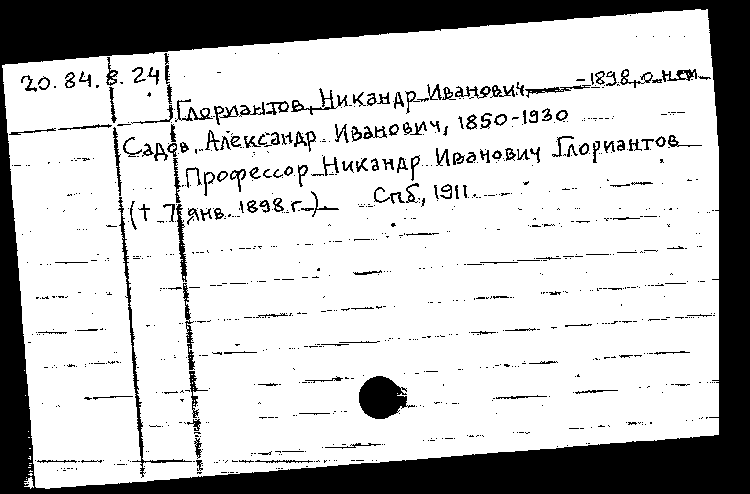 20.84.8.24
Глориантов, Никандр Иванович — -1898, о нем
Садов, Александр Иванович, 1850-1930
Профессор Никандр Иванович Глориантов
(† 7 янв. 1898 г.). Спб, 1911.